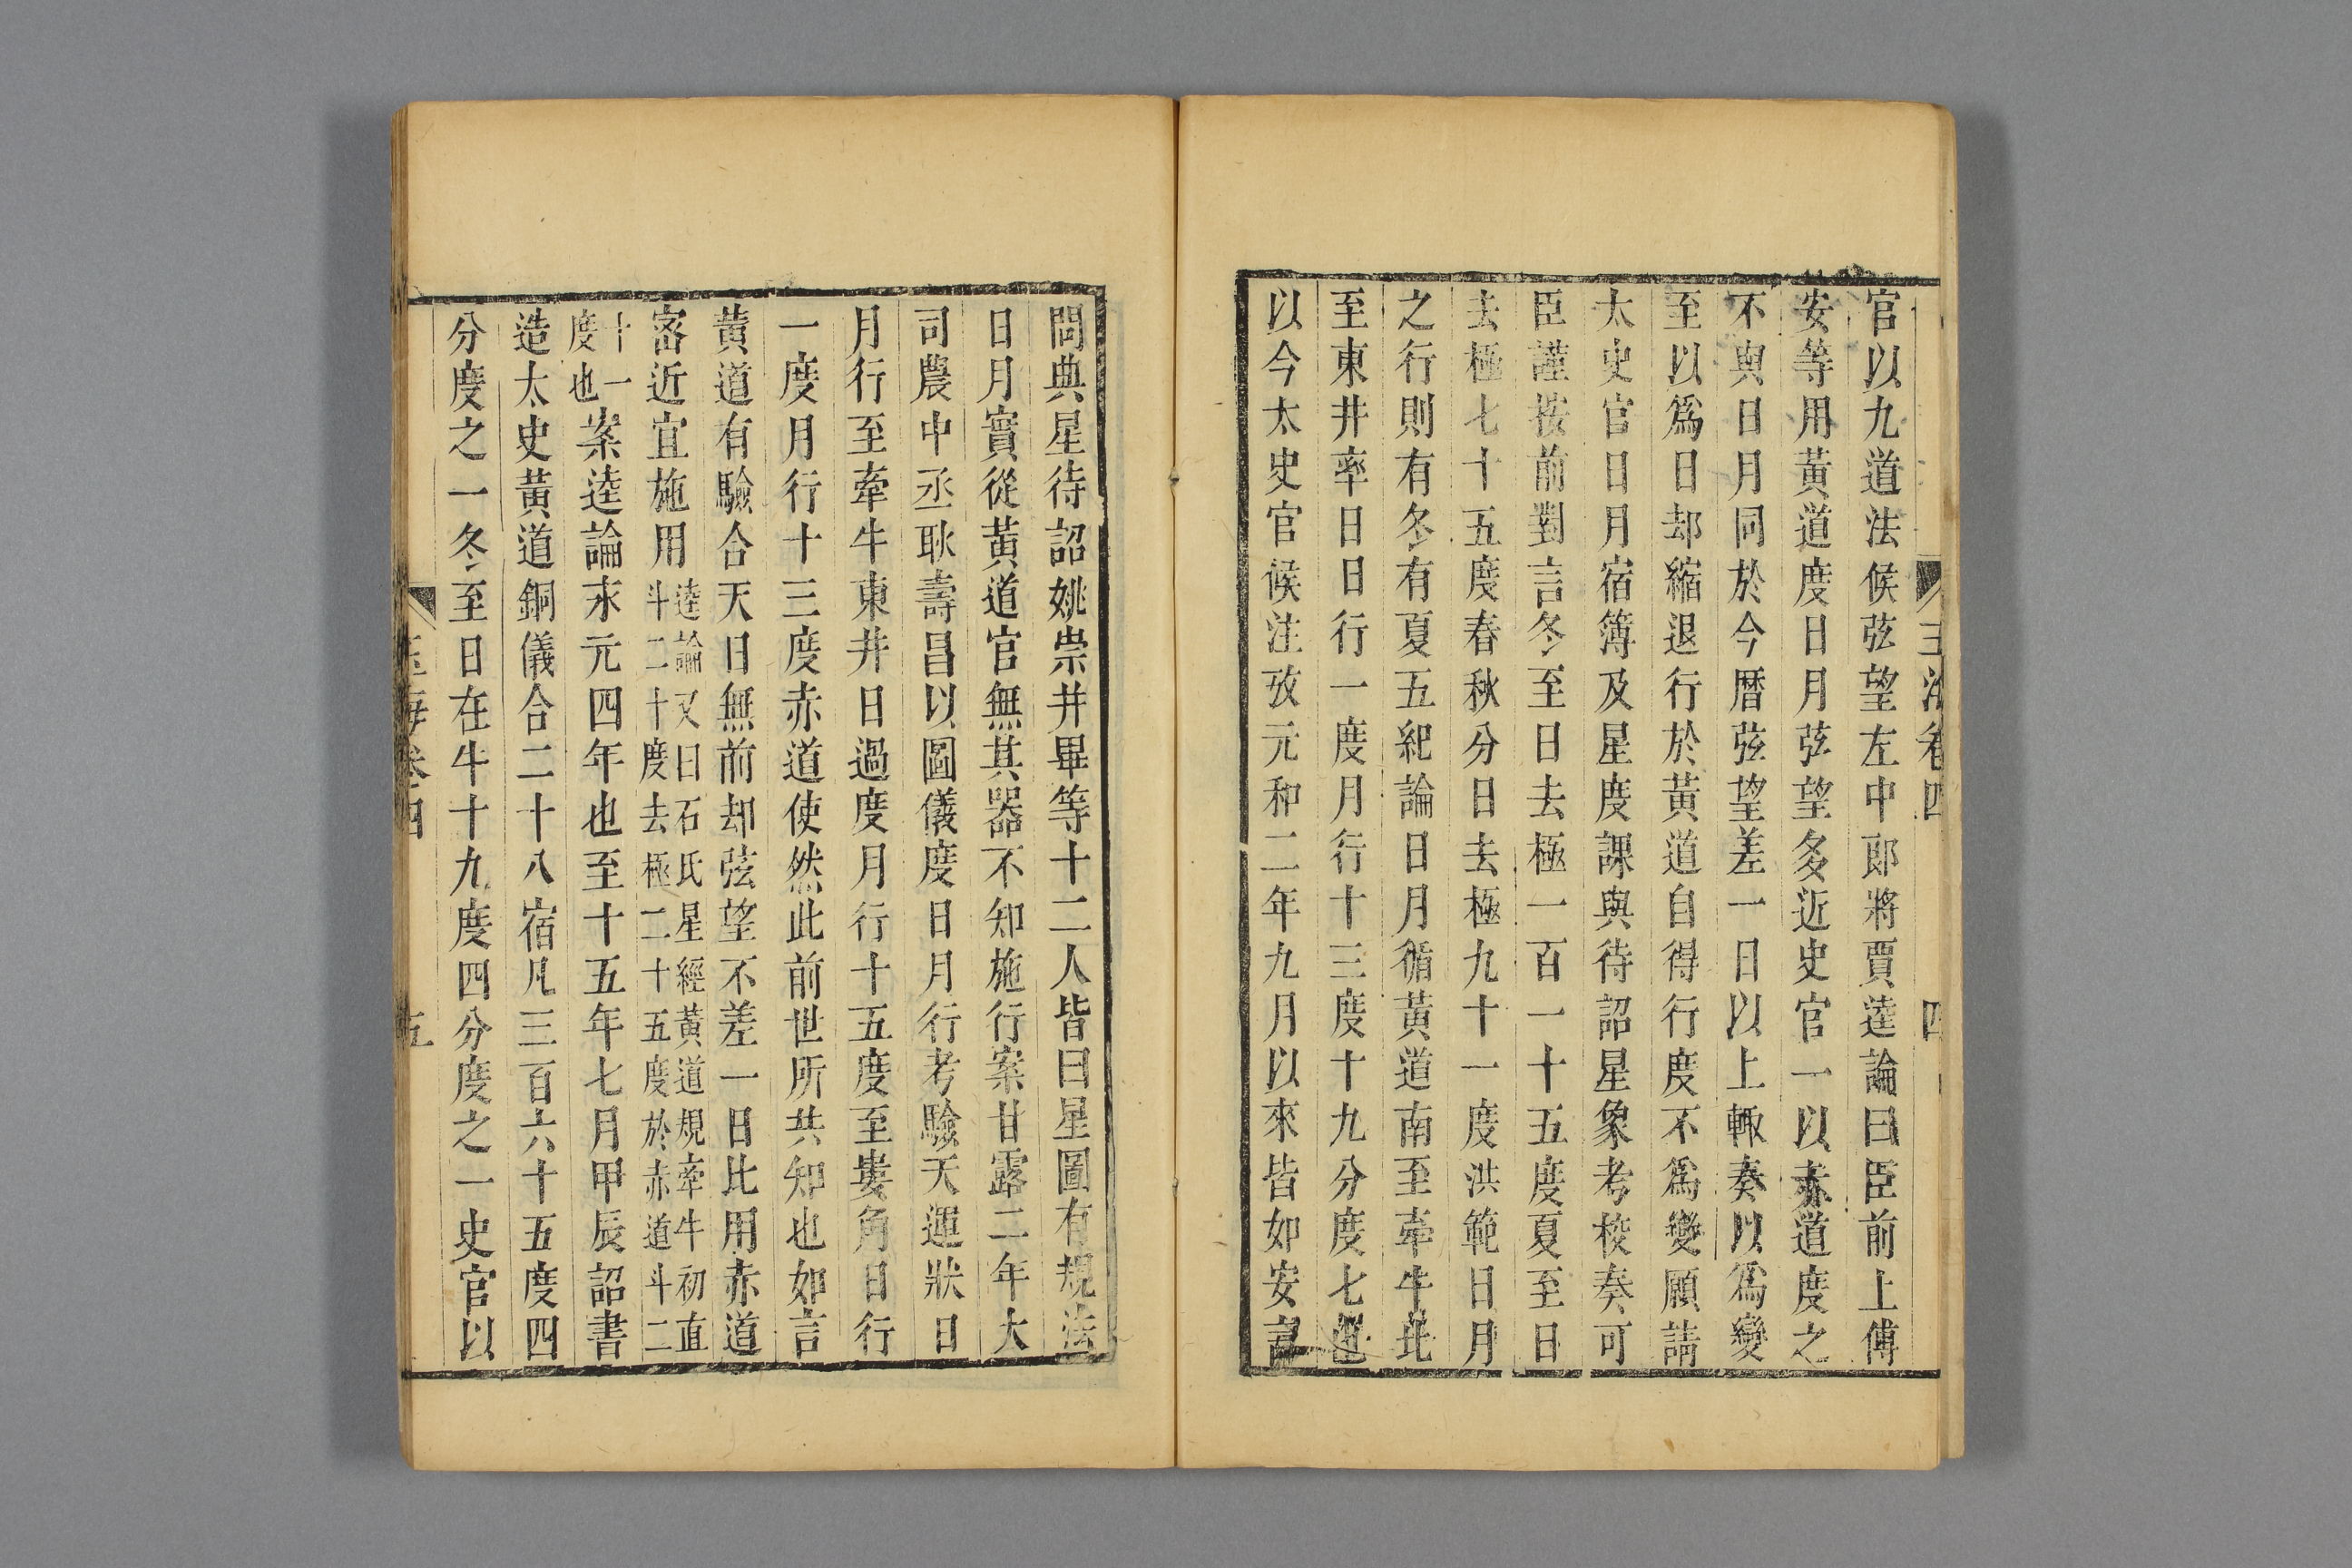 玉海卷四 四
官以九道法候弦望左中郎將賈逵論曰臣前上傅
安等用黃道度日月弦望多近史官一以赤道度之
不與日月同於今曆弦望差一日以上輒奏以爲變
至以爲日却縮退行於黃道自得行度不爲變願請
太史官日月宿簿及星度課與待詔星象考校奏可
臣謹按前對言冬至日去極一百一十五度夏至日
去極七十五度春秋分日去極九十一度洪範日月
之行則有冬有夏五紀論日月循黃道南至牽牛北
至東井率日日行一度月行十三度十九分度七也
以今太史官候注攷元和二年九月以來皆如安言
問典星待詔姚崇井畢等十二人皆曰星圖有規法
日月實從黃道官無其器不知施行案甘露二年大
司農中丞耿壽昌以圖儀度日月行考驗天運狀日
月行至牽牛東井日過度月行十五度至婁角日行
一度月行十三度赤道使然此前世所共知也如言
黃道有驗合天日無前却弦望不差一日比用赤道
密近宜施用逵論又曰石氏星經黃道規牽牛初直
斗二十度去極二十五度於赤道斗二
十一
度也案逵論永元四年也至十五年七月甲辰詔書
造太史黃道銅儀合二十八宿凡三百六十五度四
分度之一冬至日在牛十九度四分度之一史官以
玉海卷四 五